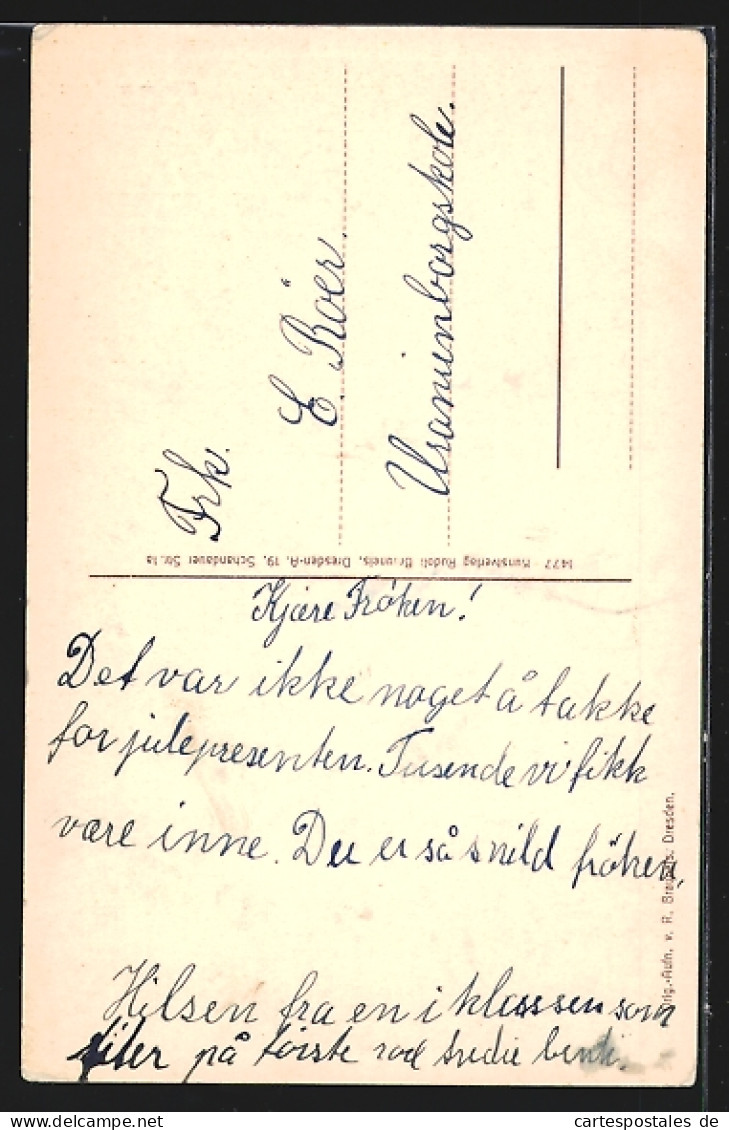 Frk.
E. Röer.
Uranienborgskole.
1477 Kunstverlag Rudolf Bruneis, Dresden-A, 19, Schandauer Str. 1a
Kjære Fröken!
Det var ikke noget å takke
for julepresenten. Tusende vi fikk
være inne. Du er så snild fröken,
Hilsen fra en i klassen som
siter på förste rad tredie benk.
Orig.-Aufn. v. R. Bruneis, Dresden.
carte-postale-ancienne.com
cartespostales de